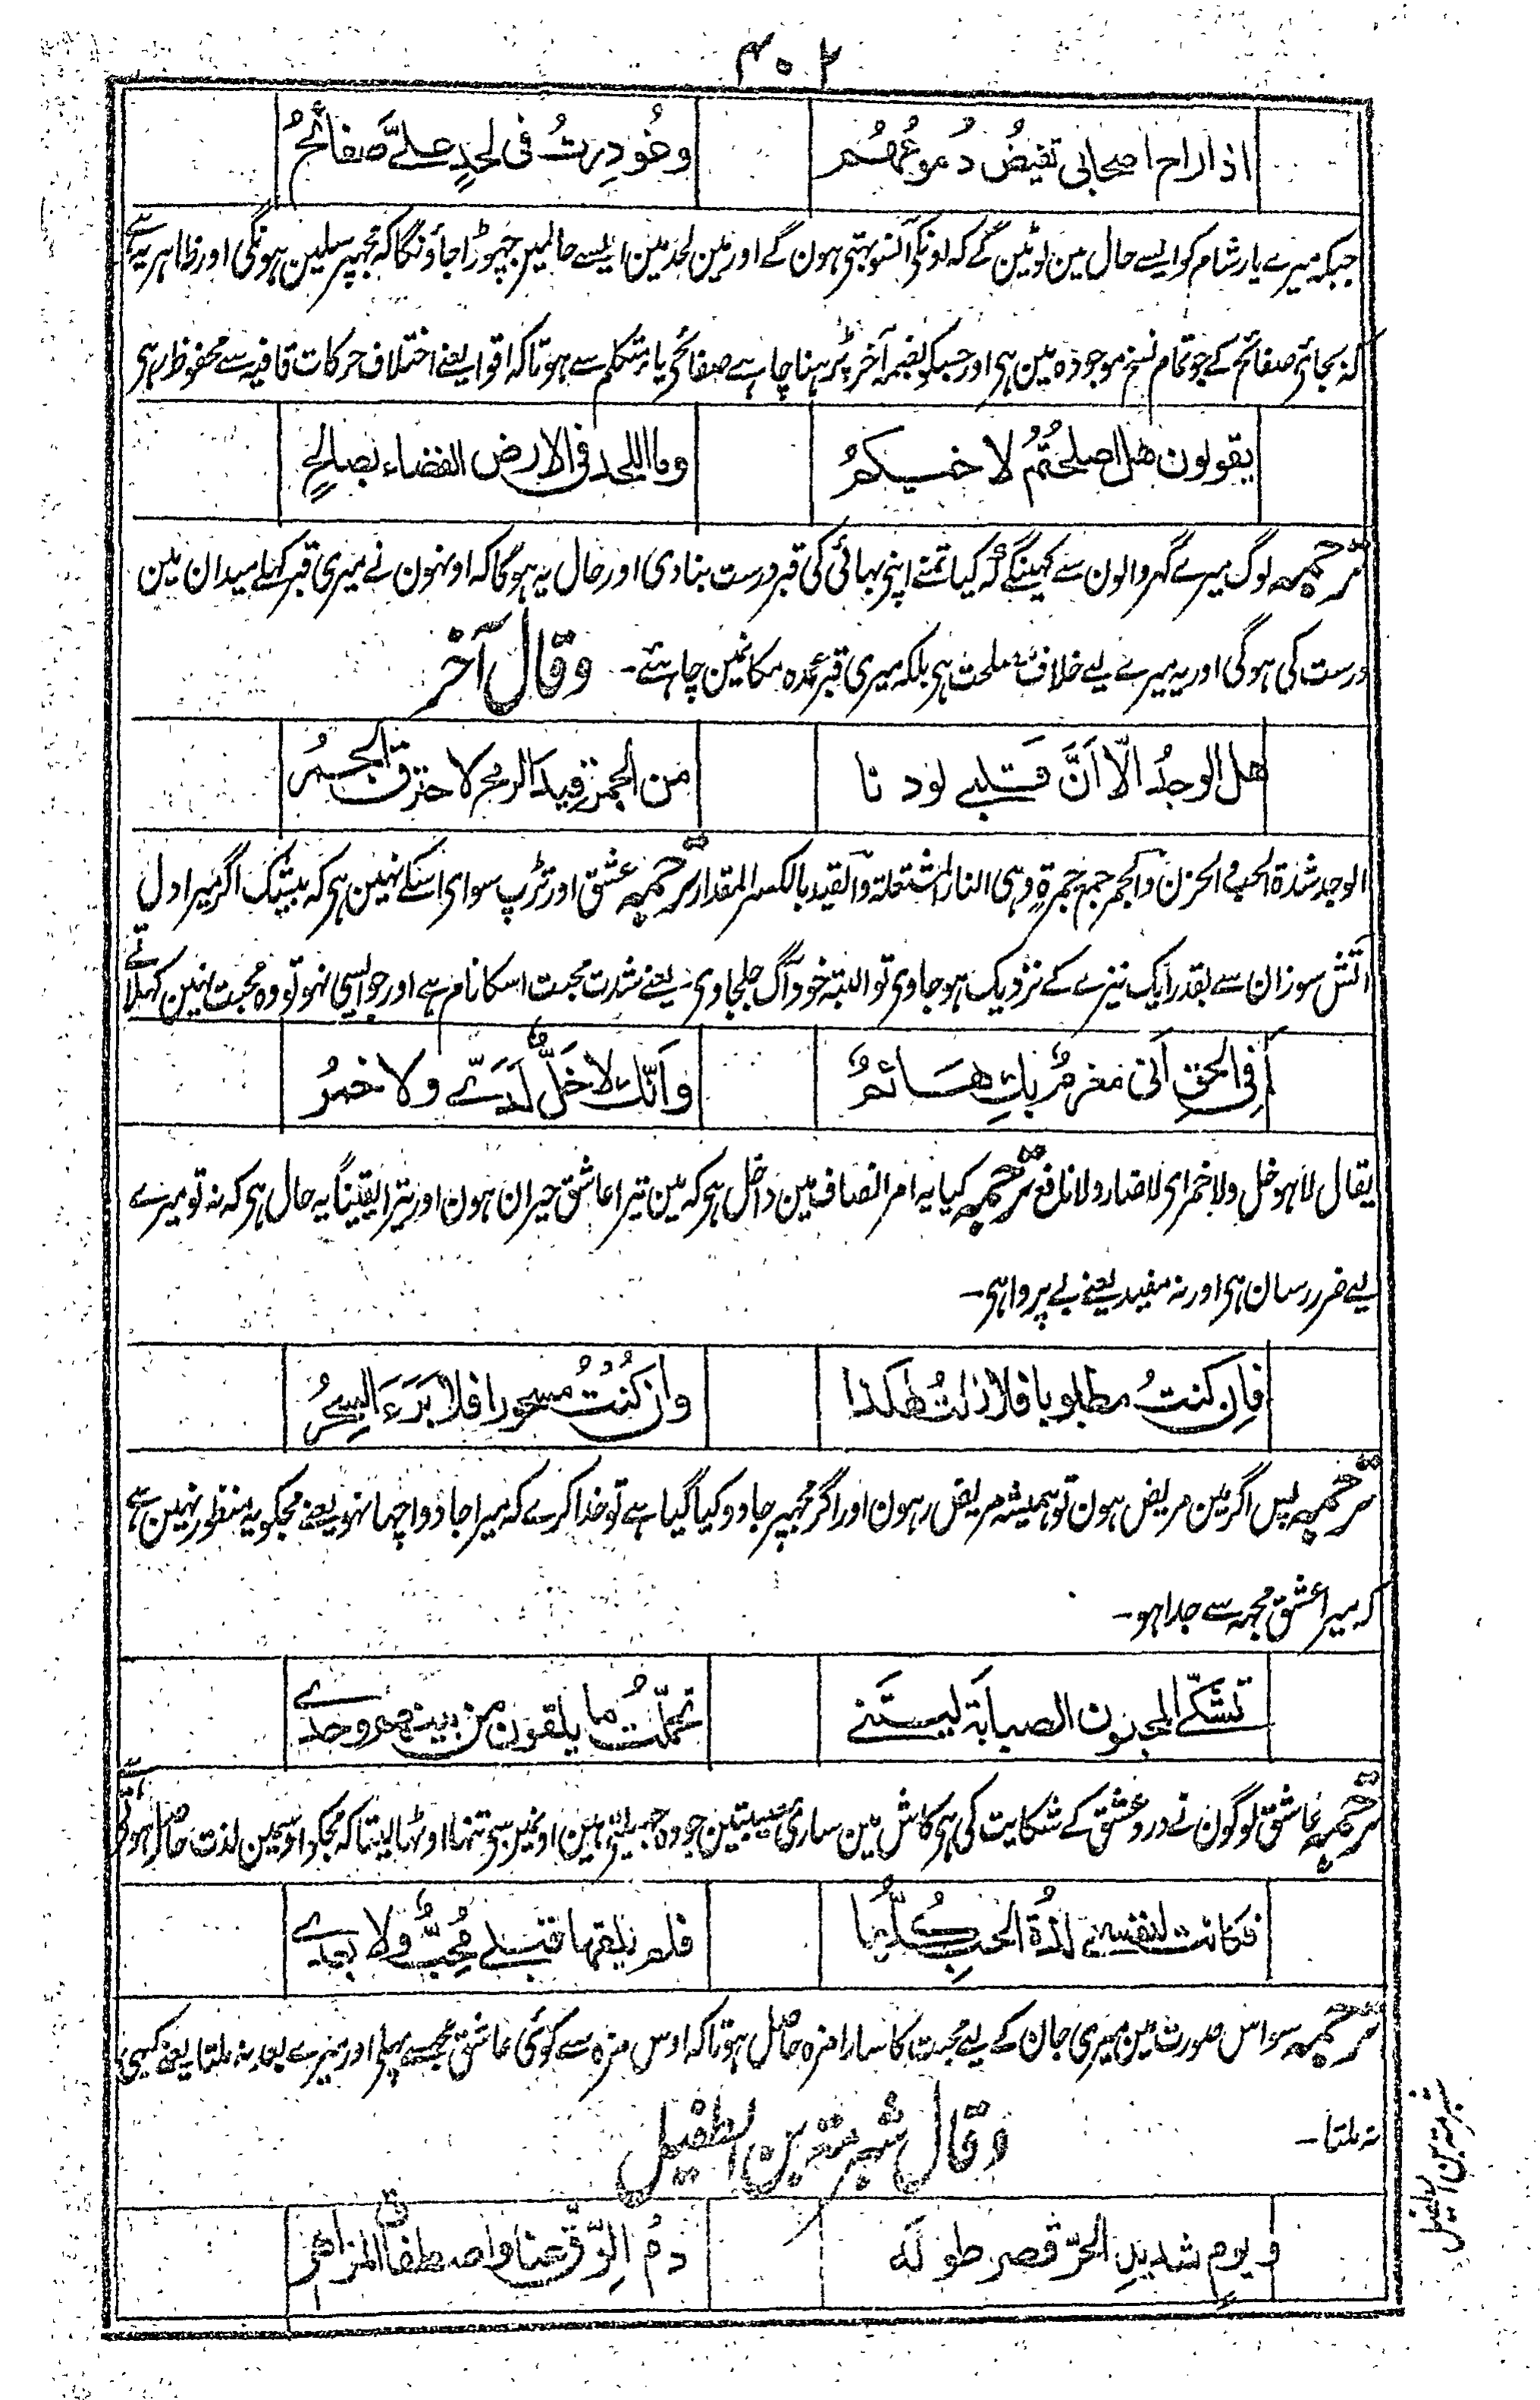 ۴۰۲
اذا راح اصحابی تفیضُ دُموعُهُم وغُودِرتُ فی لحدٍ علیَّ صفائحُ
جبکہ میرے یار شام کو ایسے حال مین لوٹین گے کہ اونکی آنسو بہتی ہون گے اور مین لحد مین ایسے حالمین چھوڑا جاؤنگا کہ مجھپر سلین ہونگی اور ظاہر یہ ہے
کہ بجائی صفائح کے جو تمام نسخ موجودہ مین ہی اور جسکو بضمہ آخر پڑہنا چاہے صفائحی یاء متکلم سے ہو تاکہ اقوا یعنے اختلاف حرکات قافیہ سے محفوظ رہی
یقولون هل اصلحتُمُ لاخیکمُ وما اللحد فی الارض الفضاء بصالحٍ
ترجمہ لوگ میرے گھر والون سے کہینگے کہ کیا تمنے اپنی بھائی کی قبر درست بنا دی اور حال یہ ہوگا کہ اونہون نے میری قبر کہلے میدان مین
درست کی ہوگی اور یہ میرے لیے خلاف مصلحت ہی بلکہ میری قبر عمدہ مکانمین چاہئے - وقال آخر
هل الوجدُ الّا اَنَّ قلبے لودنا من الجمر قید الرمح لاحترق الجمرُ
الوجد شدة الحب و الحزن والجمر جمع جمرةٍ وهی النار المشتعلة والقید بالکسر المقدار ترجمہ عشق اور تڑپ سوای اسکے نہین ہی کہ بیشک اگر میرا دل
آتش سوزان سے بقدر ایک نیزے کے نزدیک ہو جاوی تو البتہ خود آگ جلجاوی یعنے شدت محبت اسکا نام ہے اور جو ایسی نہو تو وہ محبت نہین کہلاتے
اَفِی الحقِ اَنی مغرمٌ بكِ هائمٌ واَنّكِ لاخلٌّ لَدَیَّ ولا خمرُ
یقال لا هو خل ولا خمر ای لا ضار ولا نافع ترجمہ کیا یہ امر انصاف مین داخل ہی کہ مین تیرا عاشق حیران ہون اور تیرا یقیناً یہ حال ہی کہ نہ تو میرے
لیے ضرر رسان ہی اور نہ مفید یعنے بے پروا ہی -
فاِن کنتُ مطلوبا فلا زلتُ هکذا وان کنتُ مسحورا فلا بَرَءَ السِحرُ
ترجمہ پس اگر مین مریض ہون تو ہمیشہ مریض رہون اور اگر مجھپر جادو کیا گیا ہے تو خدا کرے کہ میرا جادو اچھا نہو یعنے مجکو یہ منظور نہین ہے
کہ میرا عشق مجھہ سے جدا ہو -
تشکّے المحبون الصبابة لیتنے تحمّلتُ ما یلقون من بینهم وحدے
ترجمہ عاشق لوگون نے درد عشق کے شکایت کی ہی کاش مین ساری مصیبتین جو وہ جھیلتی ہین اونمین سی تنہا اوٹھا لیتا تاکہ مجکو اوسمین لذت حاصل ہوتی
فکانت لنفسے لذةُ الحبِ کلُّها فلم یلقها قبلے مُحِبٌّ ولا بعدے
ترجمہ سو اس صورت مین میری جان کے لیے محبت کا سارا مزہ حاصل ہوتا کہ اوس مزہ سے کوئی عاشق مجھسے پہلے اور میرے بعد نہ ملتا یعنے کسیکو
نہ ملتا -
وقال شبرمة بن الطفیل
شبرمة بن الطفیل
ویومٍ شدیدِ الحرّ قصر طولَه دمُ الزِّقِّ عنا واصطفاق المزاهرِ